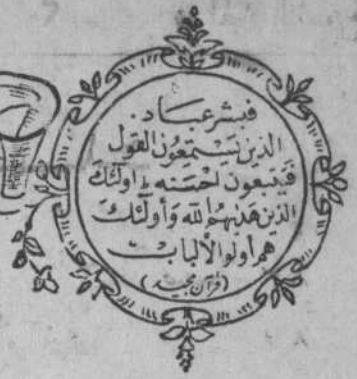 فبشر عباد.
الذين يستمعون القول
فيتبعون احسنه ۔ اولئك
الذين هدىهم الله و أولئك
هم أولوا لألباب
(قرآن مجيد)